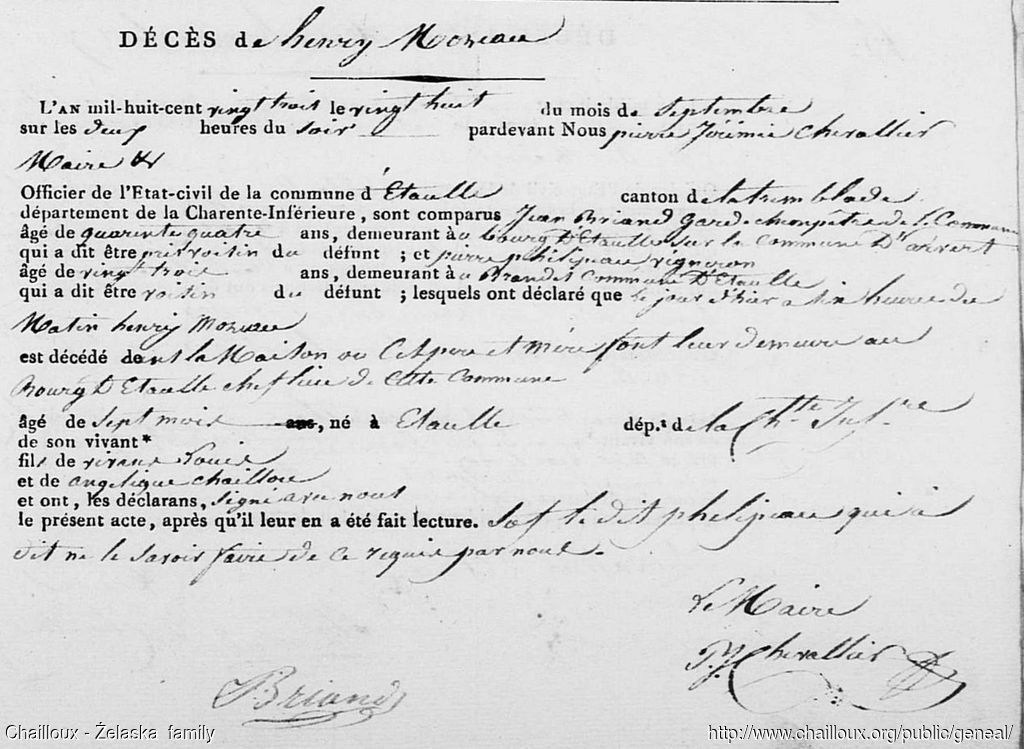 DÉCÈS de henry Moreau
L'AN mil-huit-cent vingt trois le vingt huit du mois de septembre
sur les deux heures du soir pardevant Nous pierre Jérémie Chevallier
Maire &
Officier de l'Etat-civil de la commune d'Etaulle canton de la tremblade
département de la Charente-Inférieure, sont comparus Jean Briand garde champêtre de la Commune
âgé de quarente quatre ans, demeurant à au bourg D'Etaulle sur la commune D'arvert
qui a dit être voisin du défunt ; et pierre phelipeau vigneron
âgé de vingt trois ans, demeurant à au Brandet Commune D'Etaulle
qui a dit être voisin du défunt ; lesquels ont déclaré que le jour d'hier a six heures du
Matin henry Moreau
est décédé dans la Maison ou Ces pere et mére font leur demeure au
Bourg D Etaulle chef lieu de Cette Commune
âgé de sept mois ans, né à Etaulle dép.t de la Ch.tte Inf.re
de son vivant*
fils de Louis
et de angelique chaillou
et ont, les déclarans, signé avec nous
le présent acte, après qu'il leur en a été fait lecture. Sof le dit phelipeau qui a
dit ne le savoir faire de ce requis par nous.
Le Maire
P. J. Chevallier
Briand
Chailloux - Żelaska family
http://www.chailloux.org/public/geneal/